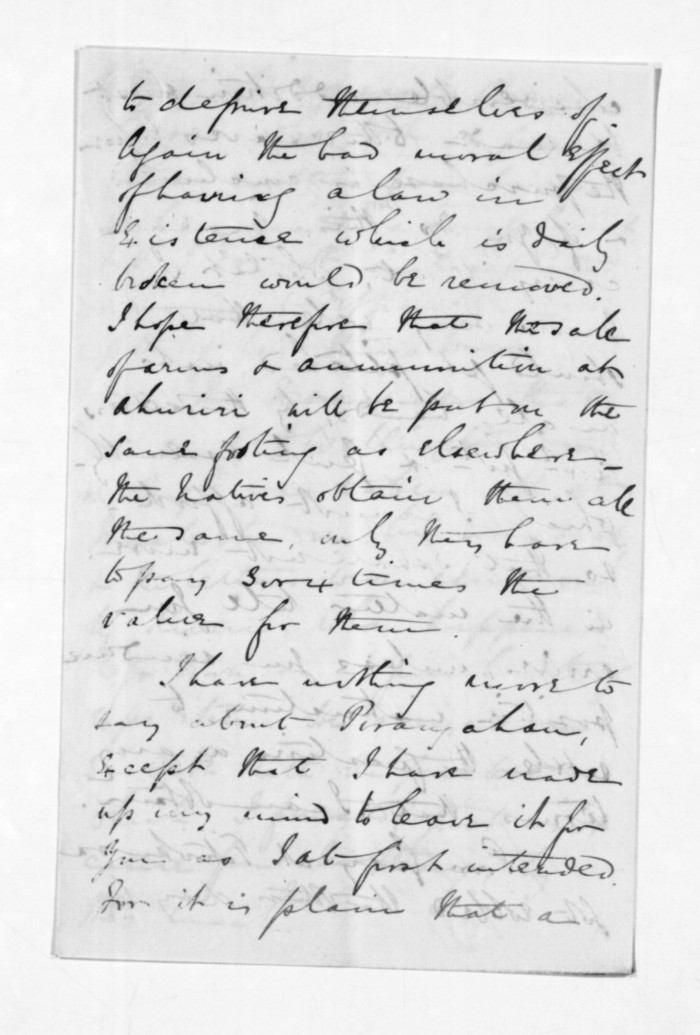 to deprive themselves of.
Again the bad moral effect
of having a law in
Existence which is daily
broken would be removed.
I hope therefore that the sale
of arms & ammunition at
Ahuriri will be put on the
same footing as elsewhere –
The Natives obtain them all
the same, only they have
to pay 3 or 4 times the
value for them.
I have nothing more to
say about Porangahau,
Except that I have made
up my mind to leave it for
you as I at first intended.
For it is plain that a